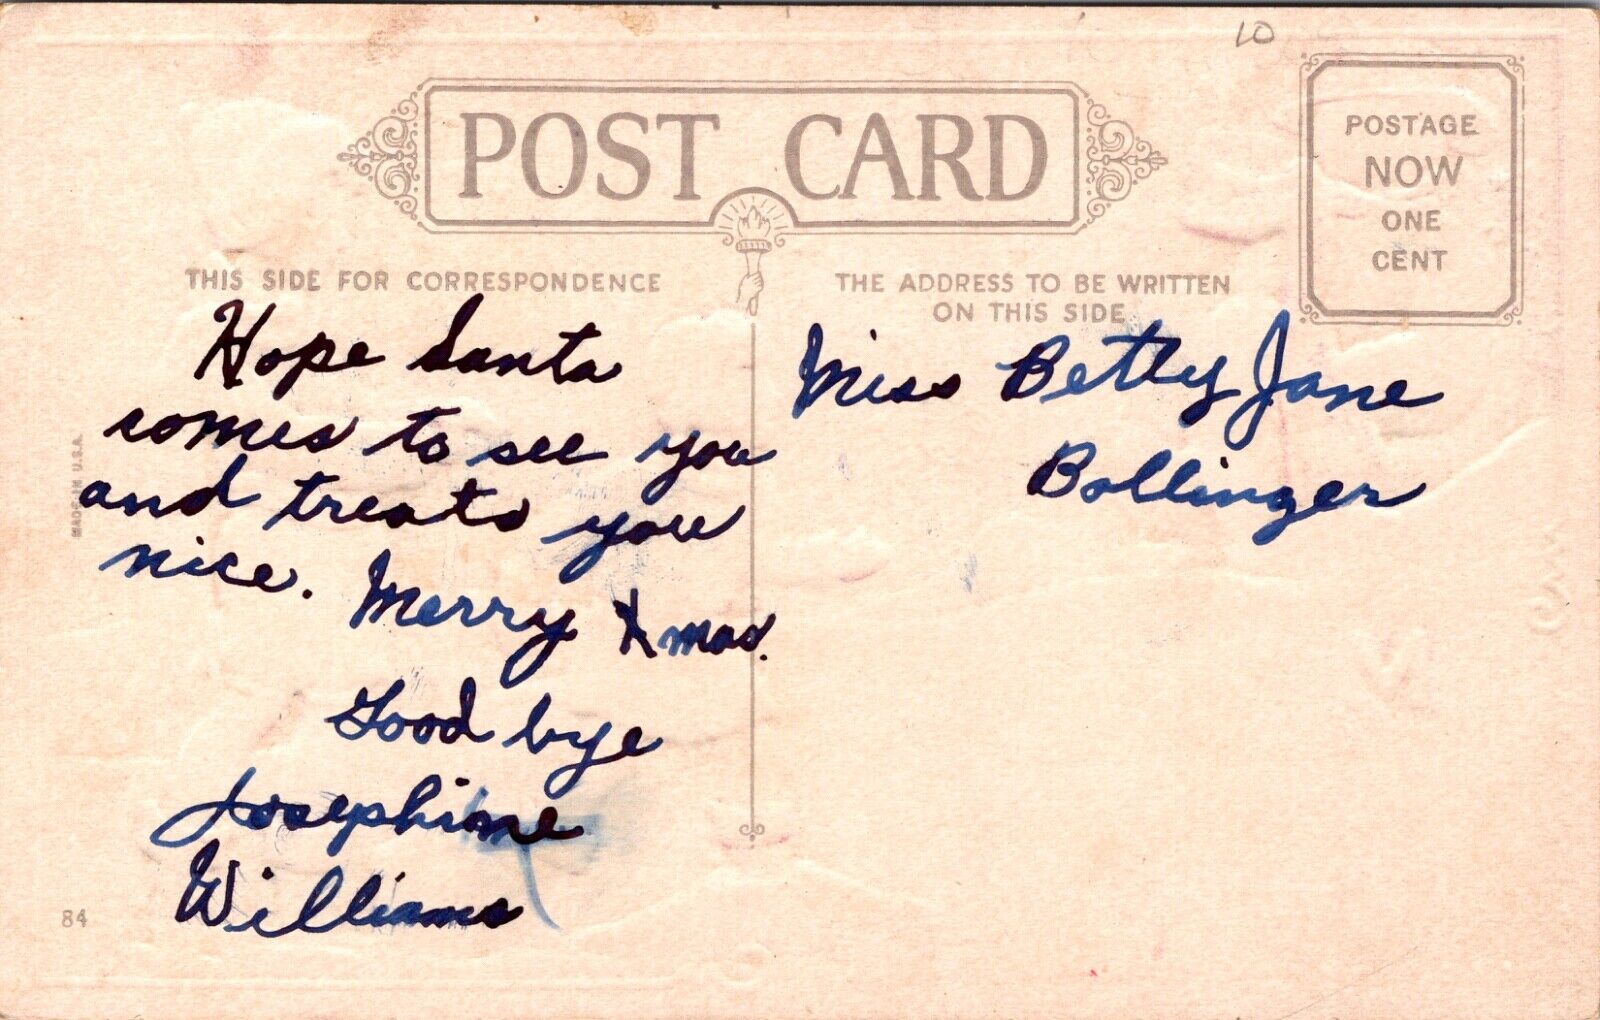 10
POST CARD
POSTAGE
NOW
ONE
CENT
THIS SIDE FOR CORRESPONDENCE
Hope Santa
comes to see you
and treats you
nice. Merry Xmas.
Good bye
Josephine
Williams
THE ADDRESS TO BE WRITTEN
ON THIS SIDE
Miss Betty Jane
Bollinger
MADE IN U.S.A.
84